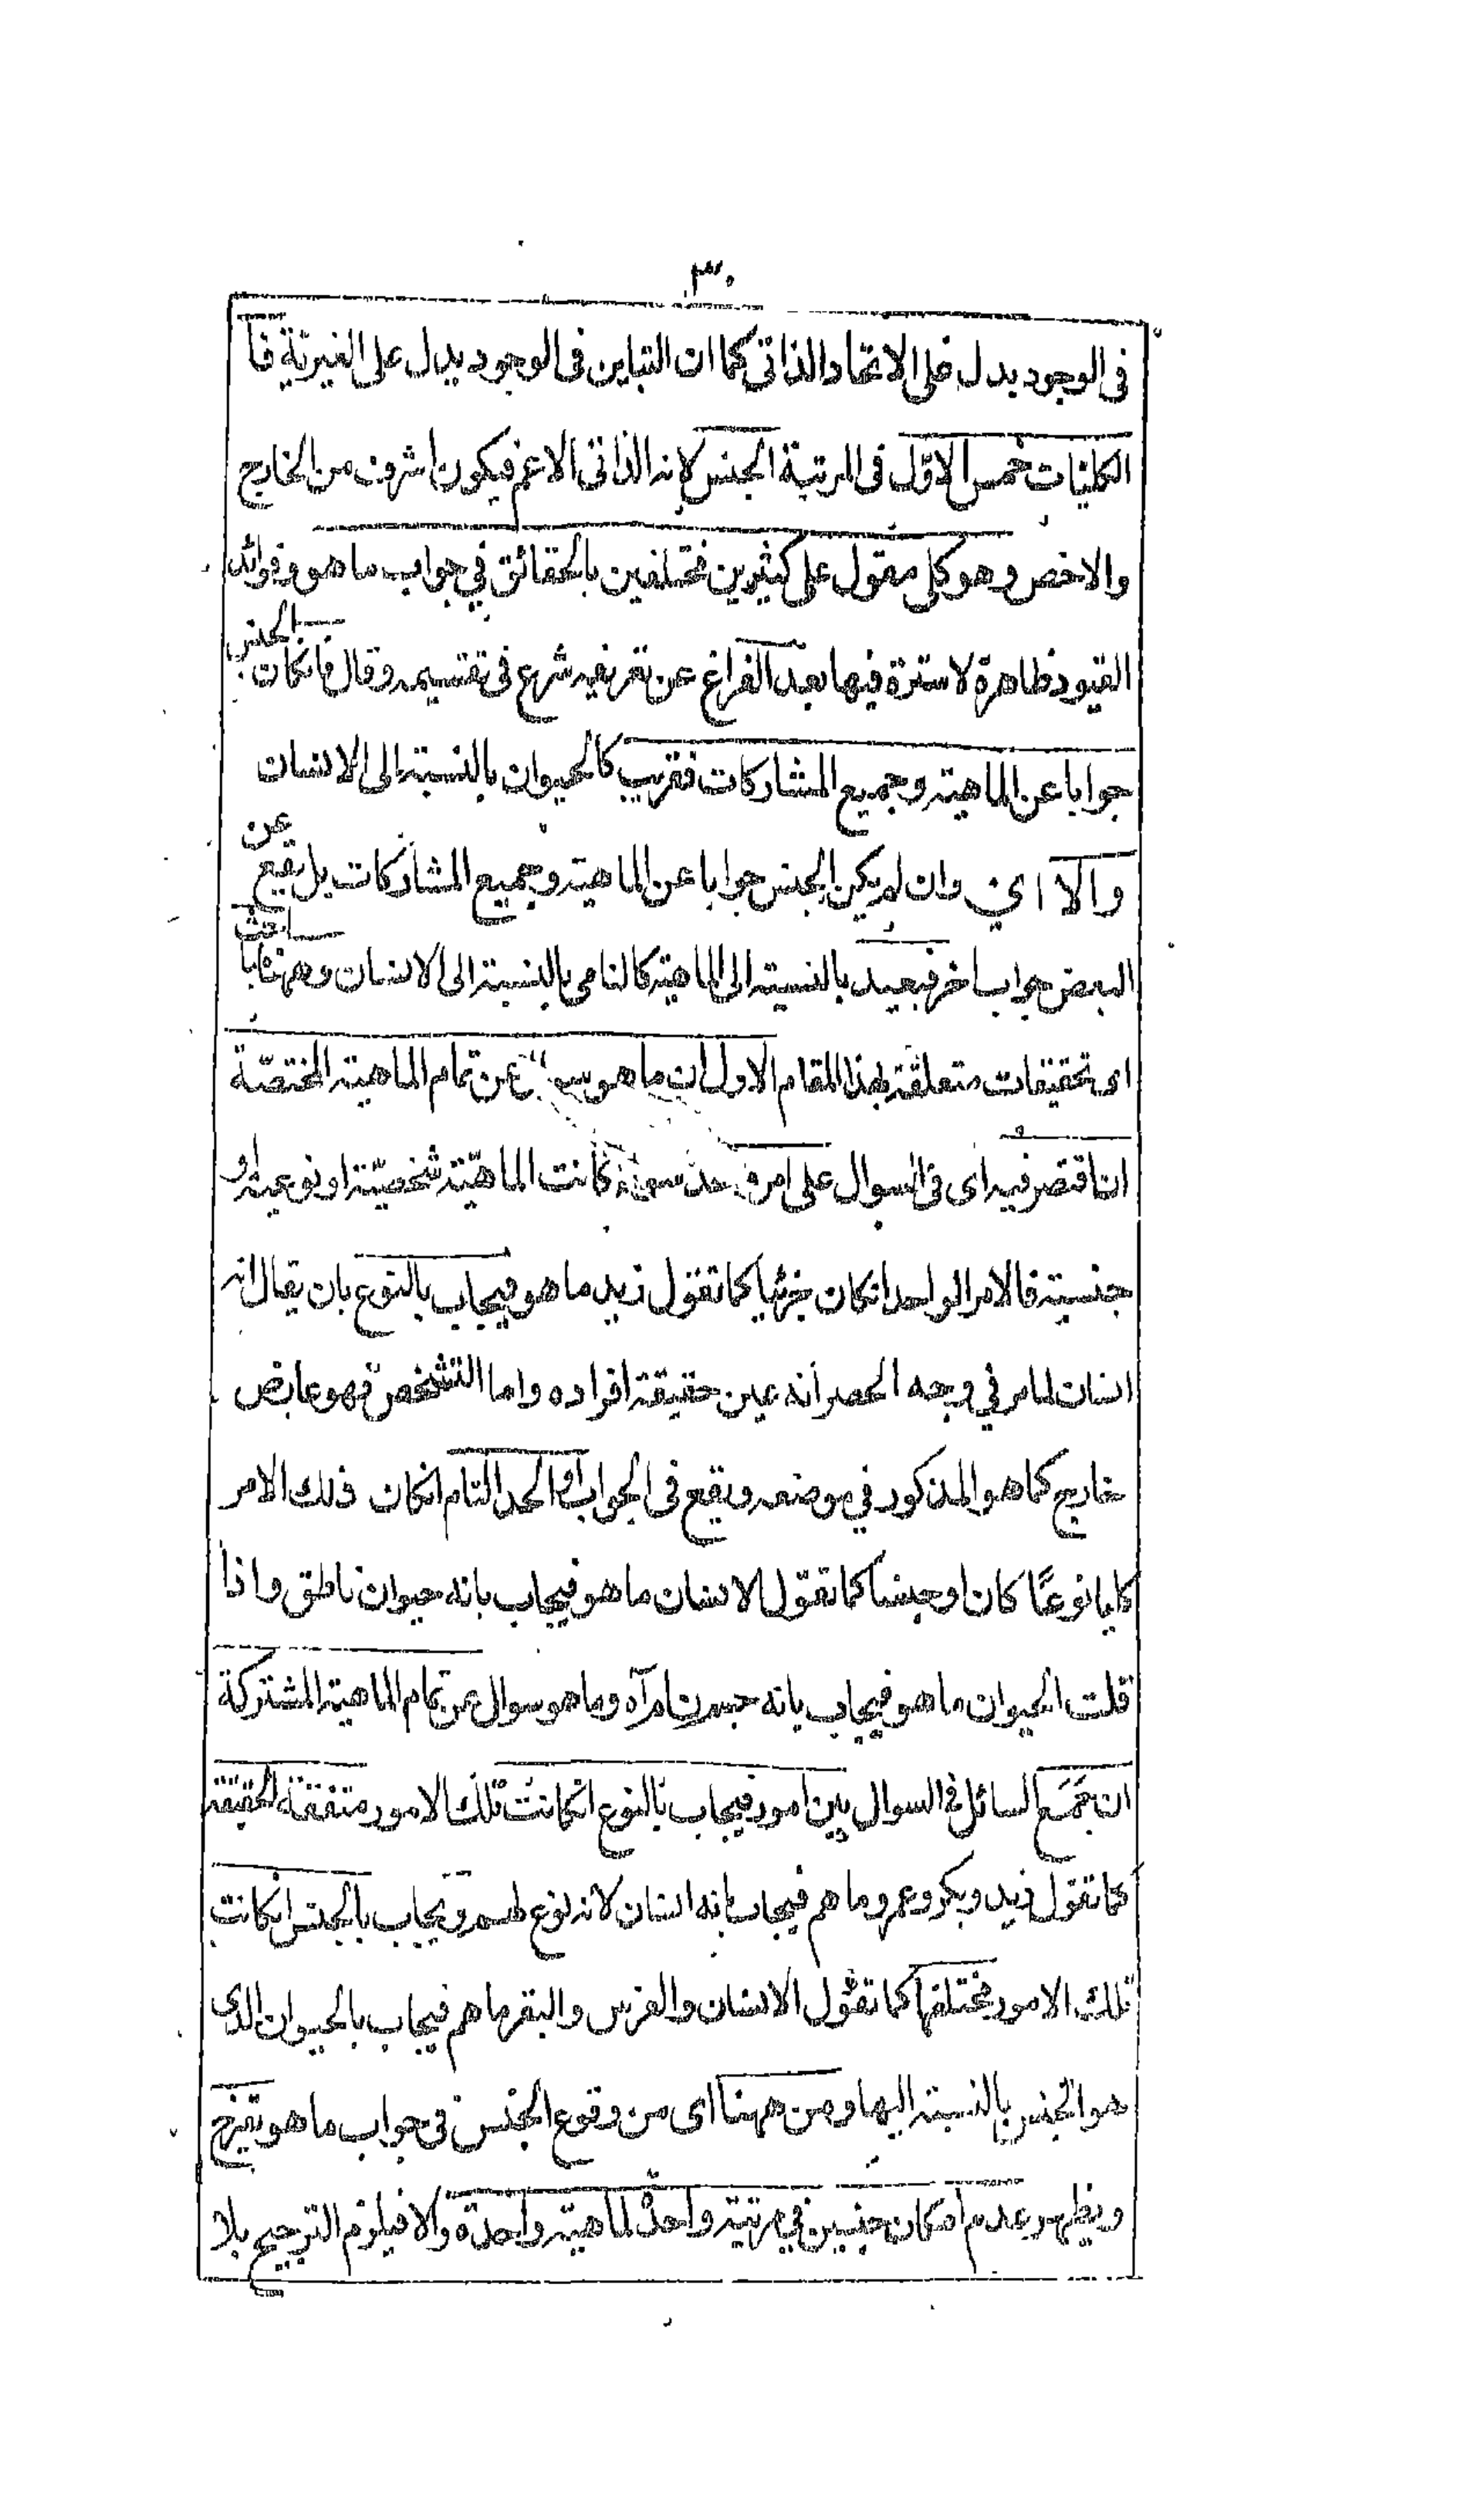 ٣٠
فى الوجود يدل على الاتحاد الذاتى كما ان التباين فى الوجود يدل على الغيرية فا
الكليات خمس الاول فى المرتبة الجنس لانه الذاتى الاعم فيكون اشرف من الخارج
والاخص وهو كلى مقول على كثيرين مختلفين بالحقائق في جواب ما هو وفوائد
القيود ظاهرة لا سترة فيها بعد الفراغ عن تعريفه شرع فى تقسيمه وقال فانكان الجنس
جوابا عن الماهية وجميع المشاركات فقريب كالحيوان بالنسبة الى الانسان
والا اى وان لم يكن الجنس جوابا عن الماهية وجميع المشاركات بل يقع عن
البعض جواب اخر فبعيد بالنسبة الى الماهية كالنامى بالنسبة الى الانسان وههنا مباحث
اى تحقيقات متعلقة بهذا المقام الاول ان ما هو سوال عن تمام الماهية المختصّة
ان اقتصر فيه اى فى السوال على امر واحد سواء كانت الماهيّة شخصيّة او نوعية او
جنسية فالامر الواحد انكان جزئيا كما تقول زيد ما هو فيجاب بالنوع بان يقال انه
انسان لما مر في وجه الحصر أنه عين حقيقة افراده واما التشخص فهو عارض
خارج كما هو المذكور في موضعه ويقع فى الجواب او الحد التام انكان ذلك الامر
كليا نوعًا كان او جنسا كما تقول الانسان ما هو فيجاب بانه حيوان ناطق واذا
قلت الحيوان ما هو فيجاب بانه جسم نام آه وما هو سوال عن تمام الماهية المشتركة
ان جَمَع السائل فى السوال بين امور فيجاب بالنوع انكانت تلك الامور متفقة الحقيقة
كما تقول زيد وبكر وعمرو ما هم فيجاب بانه انسان لانه نوع لهم ويجاب بالجنس انكانت
تلك الامور مختلفها كما تقول الانسان والفرس والبقر ما هم فيجاب بالحيوان الذى
هو الجنس بالنسبة اليها ومن ههنا اى من وقوع الجنس فى جواب ما هو يتفرع
ويظهر عدم امكان جنسين في مرتبة واحدة لماهية واحدة والا فيلزم الترجيح بلا